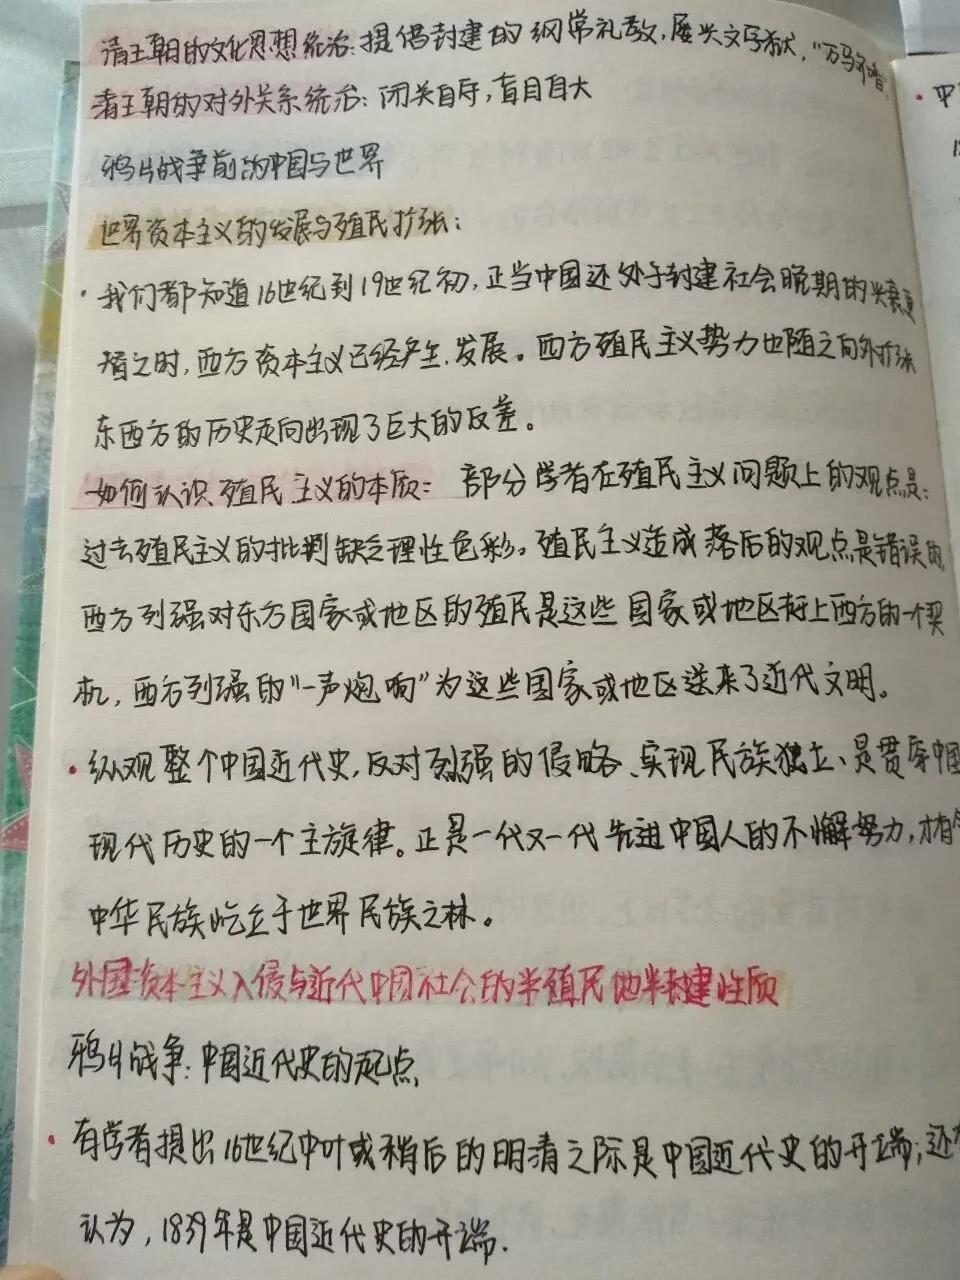 清王朝的文化思想统治:提倡封建的纲常礼教,屡兴文字狱,"万马齐喑"
清王朝的对外关系统治:闭关自守,盲目自大
鸦片战争前的中国与世界
世界资本主义的发展与殖民扩张:
·我们都知道16世纪到19世纪初,正当中国还处于封建社会晚期的兴衰更
替之时,西方资本主义已经产生、发展。西方殖民主义势力也随之向外扩张
东西方的历史走向出现了巨大的反差。
如何认识殖民主义的本质:部分学者在殖民主义问题上的观点是:
过去殖民主义的批判缺乏理性色彩。殖民主义造成落后的观点是错误的,
西方列强对东方国家或地区的殖民是这些国家或地区赶上西方的一个契
机,西方列强的"一声炮响"为这些国家或地区送来了近代文明。
·纵观整个中国近代史,反对列强的侵略、实现民族独立、是贯穿中国
现代历史的一个主旋律。正是一代又一代先进中国人的不懈努力,才有
中华民族屹立于世界民族之林。
外国资本主义入侵与近代中国社会的半殖民地半封建性质
鸦片战争:中国近代史的起点
·有学者提出16世纪中叶或稍后的明清之际是中国近代史的开端;还有
认为,1839年是中国近代史的开端.
·中